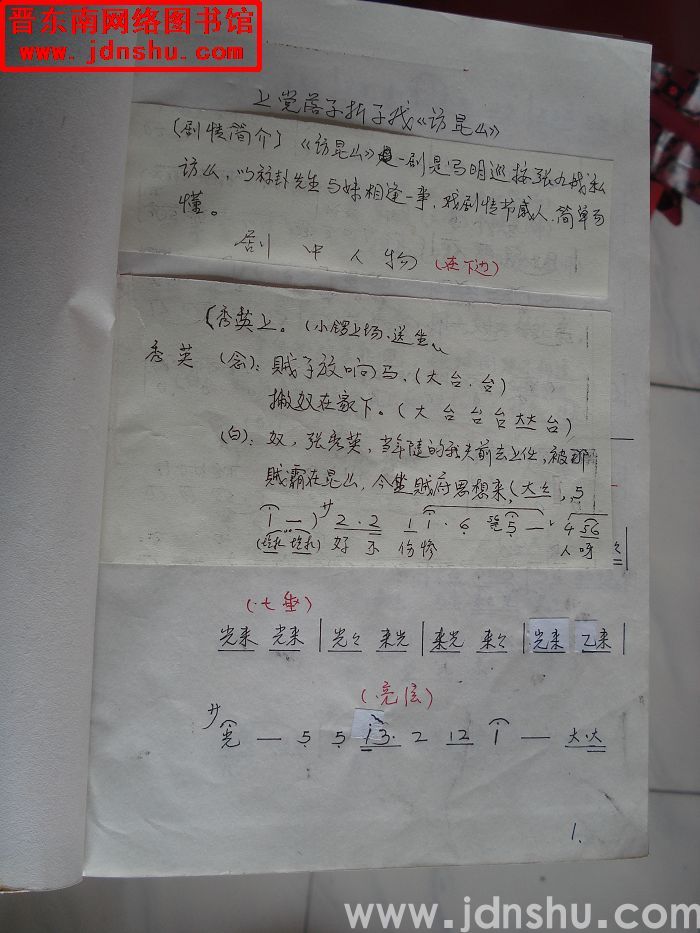 晋东南网络图书馆
www.jdnshu.com
上党落子折子戏《访昆山》
(剧情简介)《访昆山》一剧是写明巡按张九成私
访么,以算卦先生与妹相逢一事,戏剧情节感人.简单易
懂。
剧 中 人 物 (在下边)
(秀英上。(小锣上场.送坐、
秀英 (念):贼子放响马、(大台.台)
撇奴在家下。(大 台 台 台 大大 台)
(白):奴,张秀英,当年随的我夫前去上任,被那
贼霸在昆山,今坐贼府思想来(大台,5
1 —) サ 2·2 1 1·6 5 — 4 56
好 不 伤惨 人呀
(七垂)
光来 光来 | 光々 来光 | 来光 来々 | 光来 乙来 |
(亮弦)
サ 光 — 5 5 13· 2 12 1 — 大·大
1.
www.jdnshu.com